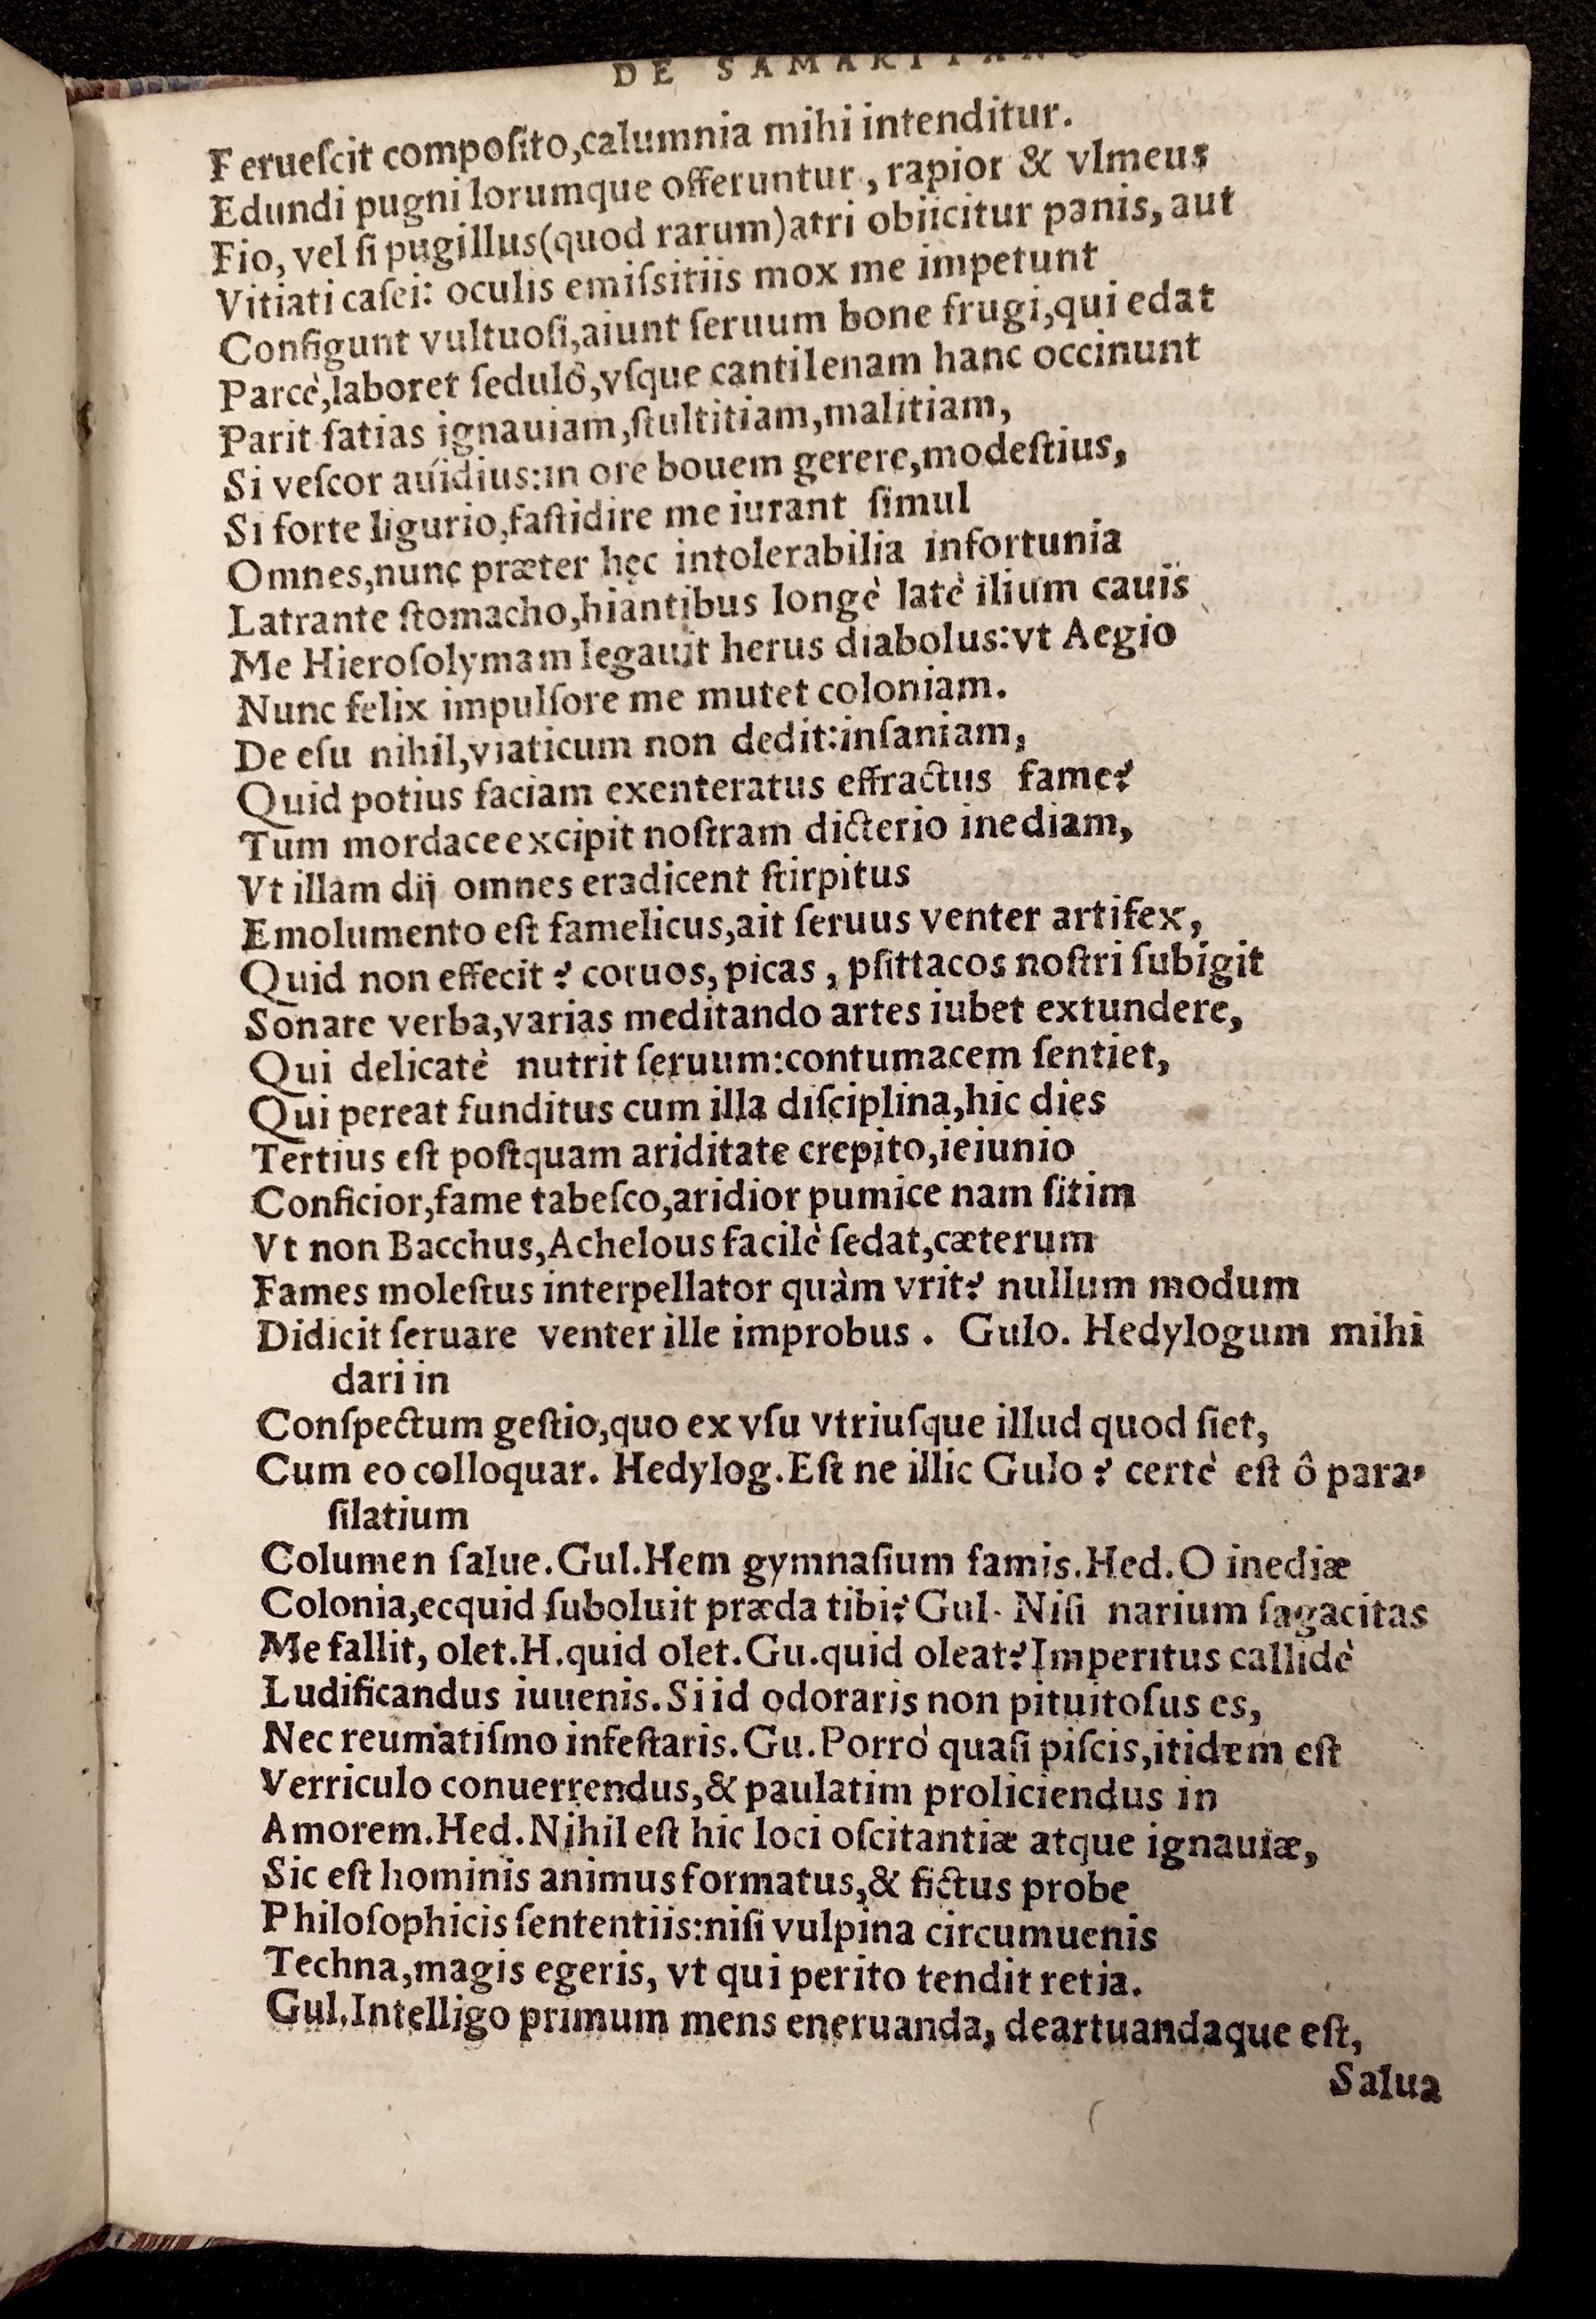 DE SAMARITANO
Ferueſcit compoſito,calumnia mihi intenditur.
Edundi pugni lorumque offeruntur, rapior & vlmeus
Fio, vel ſi pugillus(quod rarum)atri obiicitur panis, aut
Vitiati caſei: oculis emiſsitiis mox me impetunt
Configunt vultuoſi,aiunt ſeruum bone frugi,qui edat
Parcè,laboret ſedulò,vſque cantilenam hanc occinunt
Parit ſatias ignauiam,ſtultitiam,malitiam,
Si veſcor auidius:in ore bouem gerere,modeſtius,
Si forte ligurio,faſtidire me iurant ſimul
Omnes,nunc præter hęc intolerabilia infortunia
Latrante ſtomacho,hiantibus longè latè ilium cauïs
Me Hieroſolymam legauit herus diabolus:vt Aegio
Nunc felix impulſore me mutet coloniam.
De eſu nihil,viaticum non dedit:inſaniam,
Quid potius faciam exenteratus effractus fame?
Tum mordace excipit noſtram dicterio inediam,
Vt illam dij omnes eradicent ſtirpitus
Emolumento eſt famelicus,ait ſeruus venter artifex,
Quid non effecit? coruos, picas, pſittacos noſtri ſubigit
Sonare verba,varias meditando artes iubet extundere,
Qui delicatè nutrit ſeruum:contumacem ſentiet,
Qui pereat funditus cum illa diſciplina,hic dies
Tertius eſt poſtquam ariditate crepito,ieiunio
Conficior,fame tabeſco,aridior pumice nam ſitim
Vt non Bacchus,Achelous facilè ſedat,cæterum
Fames moleſtus interpellator quàm vrit? nullum modum
Didicit ſeruare venter ille improbus. Gulo. Hedylogum mihi
dari in
Conſpectum geſtio,quo ex vſu vtriuſque illud quod ſiet,
Cum eo colloquar. Hedylog.Eſt ne illic Gulo? certè eſt ô para-
ſilatium
Columen ſalue.Gul.Hem gymnaſium famis.Hed.O inediæ
Colonia,ecquid ſuboluit præda tibi?Gul. Niſi narium ſagacitas
Me fallit, olet.H.quid olet.Gu.quid oleat?Imperitus callidè
Ludificandus iuuenis.Si id odoraris non pituitoſus es,
Nec reumatiſmo infeſtaris.Gu.Porrò quaſi piſcis,itidem eſt
Verriculo conuerrendus,& paulatim proliciendus in
Amorem.Hed.Nihil eſt hic loci oſcitantiæ atque ignauiæ,
Sic eſt hominis animus formatus,& fictus probe
Philoſophicis ſententiis:niſi vulpina circumuenis
Techna,magis egeris, vt qui perito tendit retia.
Gul.Intelligo primum mens eneruanda, deartuandaque eſt,
Salua